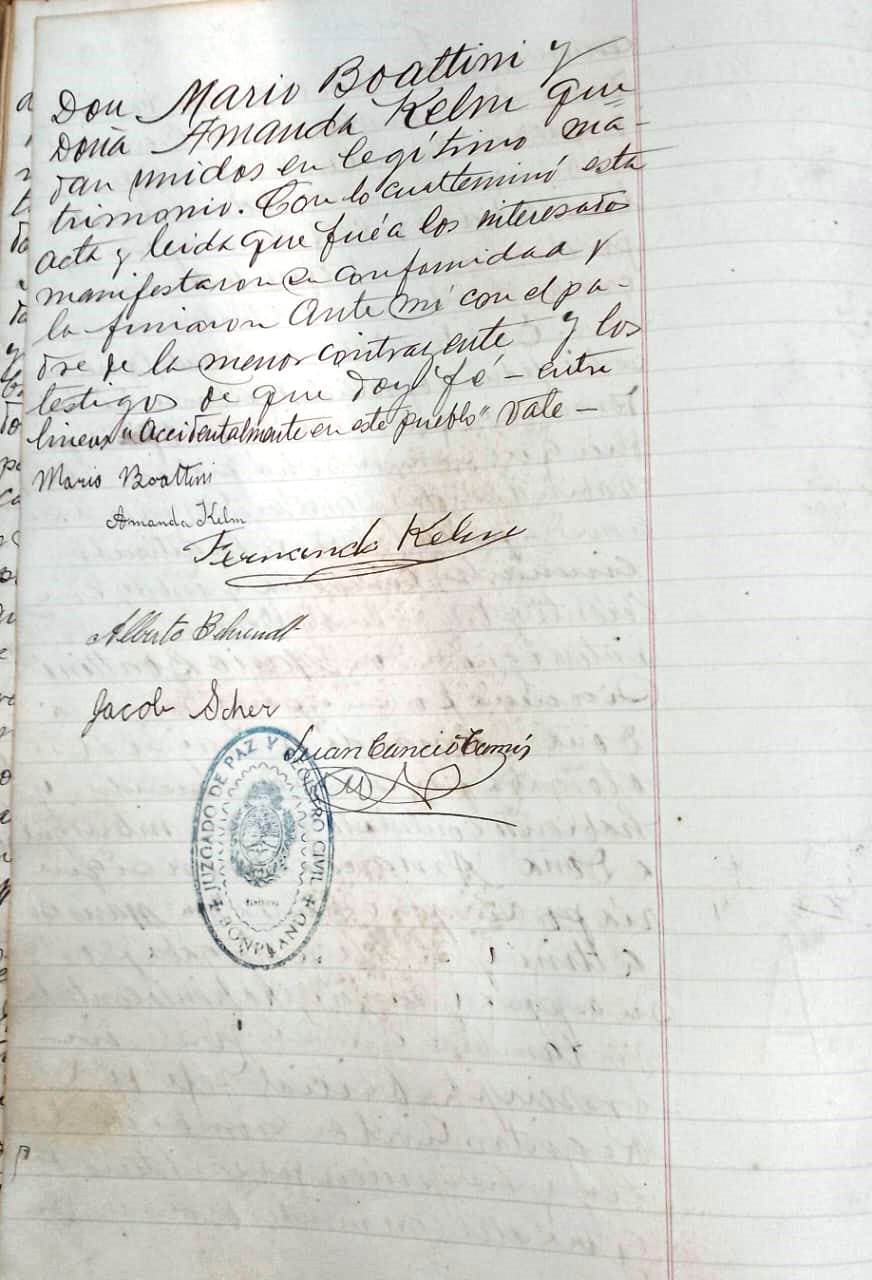 Don Mario Boattini y
Doña Amanda Kelm que
dan unidos en legítimo ma-
trimonio. Con lo cual terminó esta
acta y leida que fué a los interesados
manifestaron su conformidad y
la firmaron ante mí con el pa-
dre de la menor contrayente y los
testigos de que doy fé - entre
lineas "accidentalmente en este pueblo" Vale -
Mario Boattini
Amanda Kelm
Fernando Kelm
Alberto Behrendt
Jacob Scher
Juan Cancio
JUZGADO DE PAZ Y REGISTRO CIVIL
BONPLAND